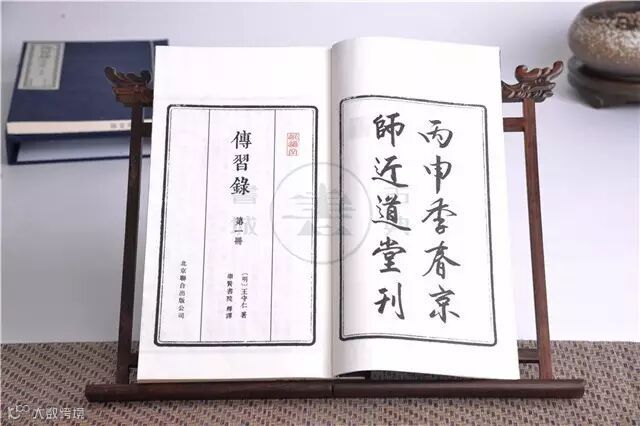 丙申季春京
師近道堂刊
傳習錄
第一冊
〔明〕王守仁 著
崇賢書院 釋譯
北京聯合出版公司
大數跨境